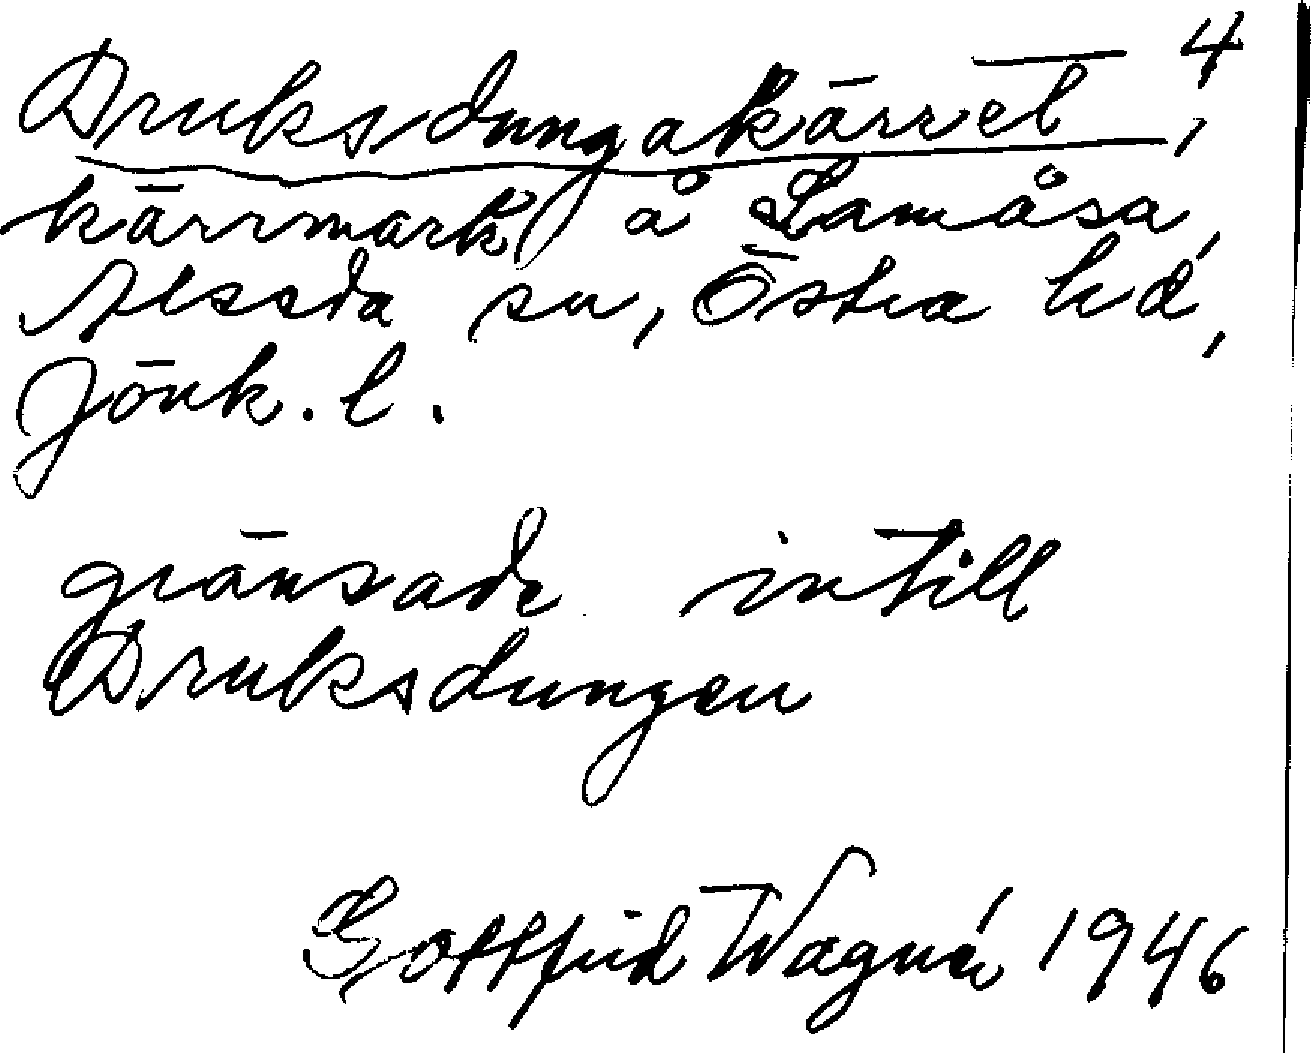 Druksdungakärret, 4
kärrmark å Lamåsa,
Alseda sn, Östra hd,
Jönk. l.
gränsade intill
Druksdungen
Gottfrid Wagnér 1946